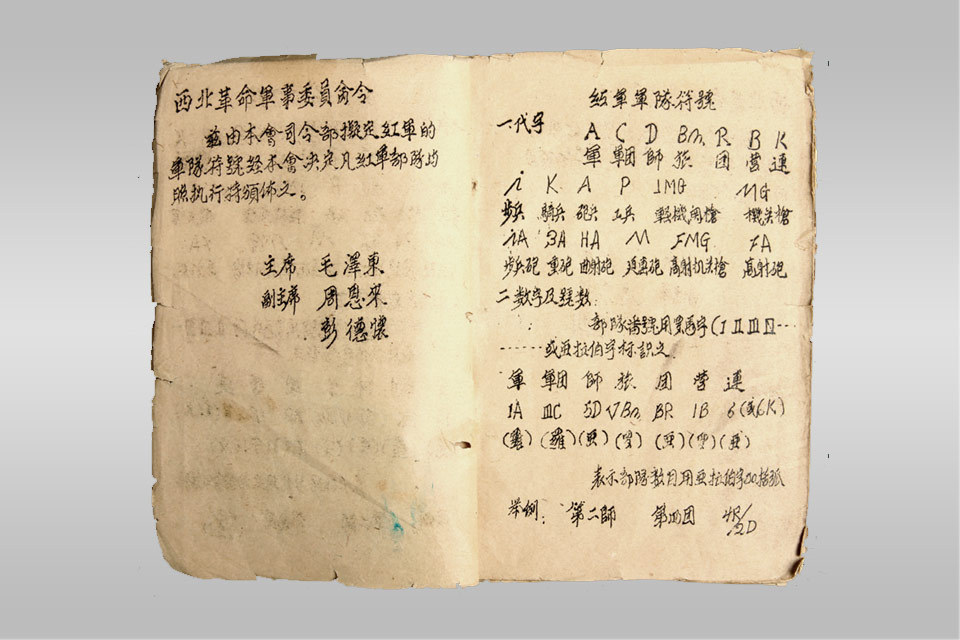 西北革命軍事委員會令
茲由本會司令部擬定紅軍的
軍隊符號经本會决定凡紅軍部隊均
照执行特頒佈之。
主席 毛澤東
副主席 周恩來
彭德懷
紅軍軍隊符號
一.代字
A C D Bn. R. B K
軍 軍団 師 旅 团 營 連
i K. A P IMG MG
步兵 騎兵 砲兵 工兵 輕機関槍 機关槍
iA BA HA M FMG FA
步兵砲 重砲 曲射砲 迫擊砲 高射机关槍 高射砲
二数字及號数:
部隊番號用羅馬字(I II III IV----
------或亞拉伯字标識之.
軍 軍团 師 旅 团 營 連
1A IIIC 5D VBn BR 1B 6(或6K)
(羅) (羅) (亞) (罗) (亞) (罗) (亞)
表示部隊数目用亞拉伯字加括弧
举例: 第二師 第四团 4R/2D